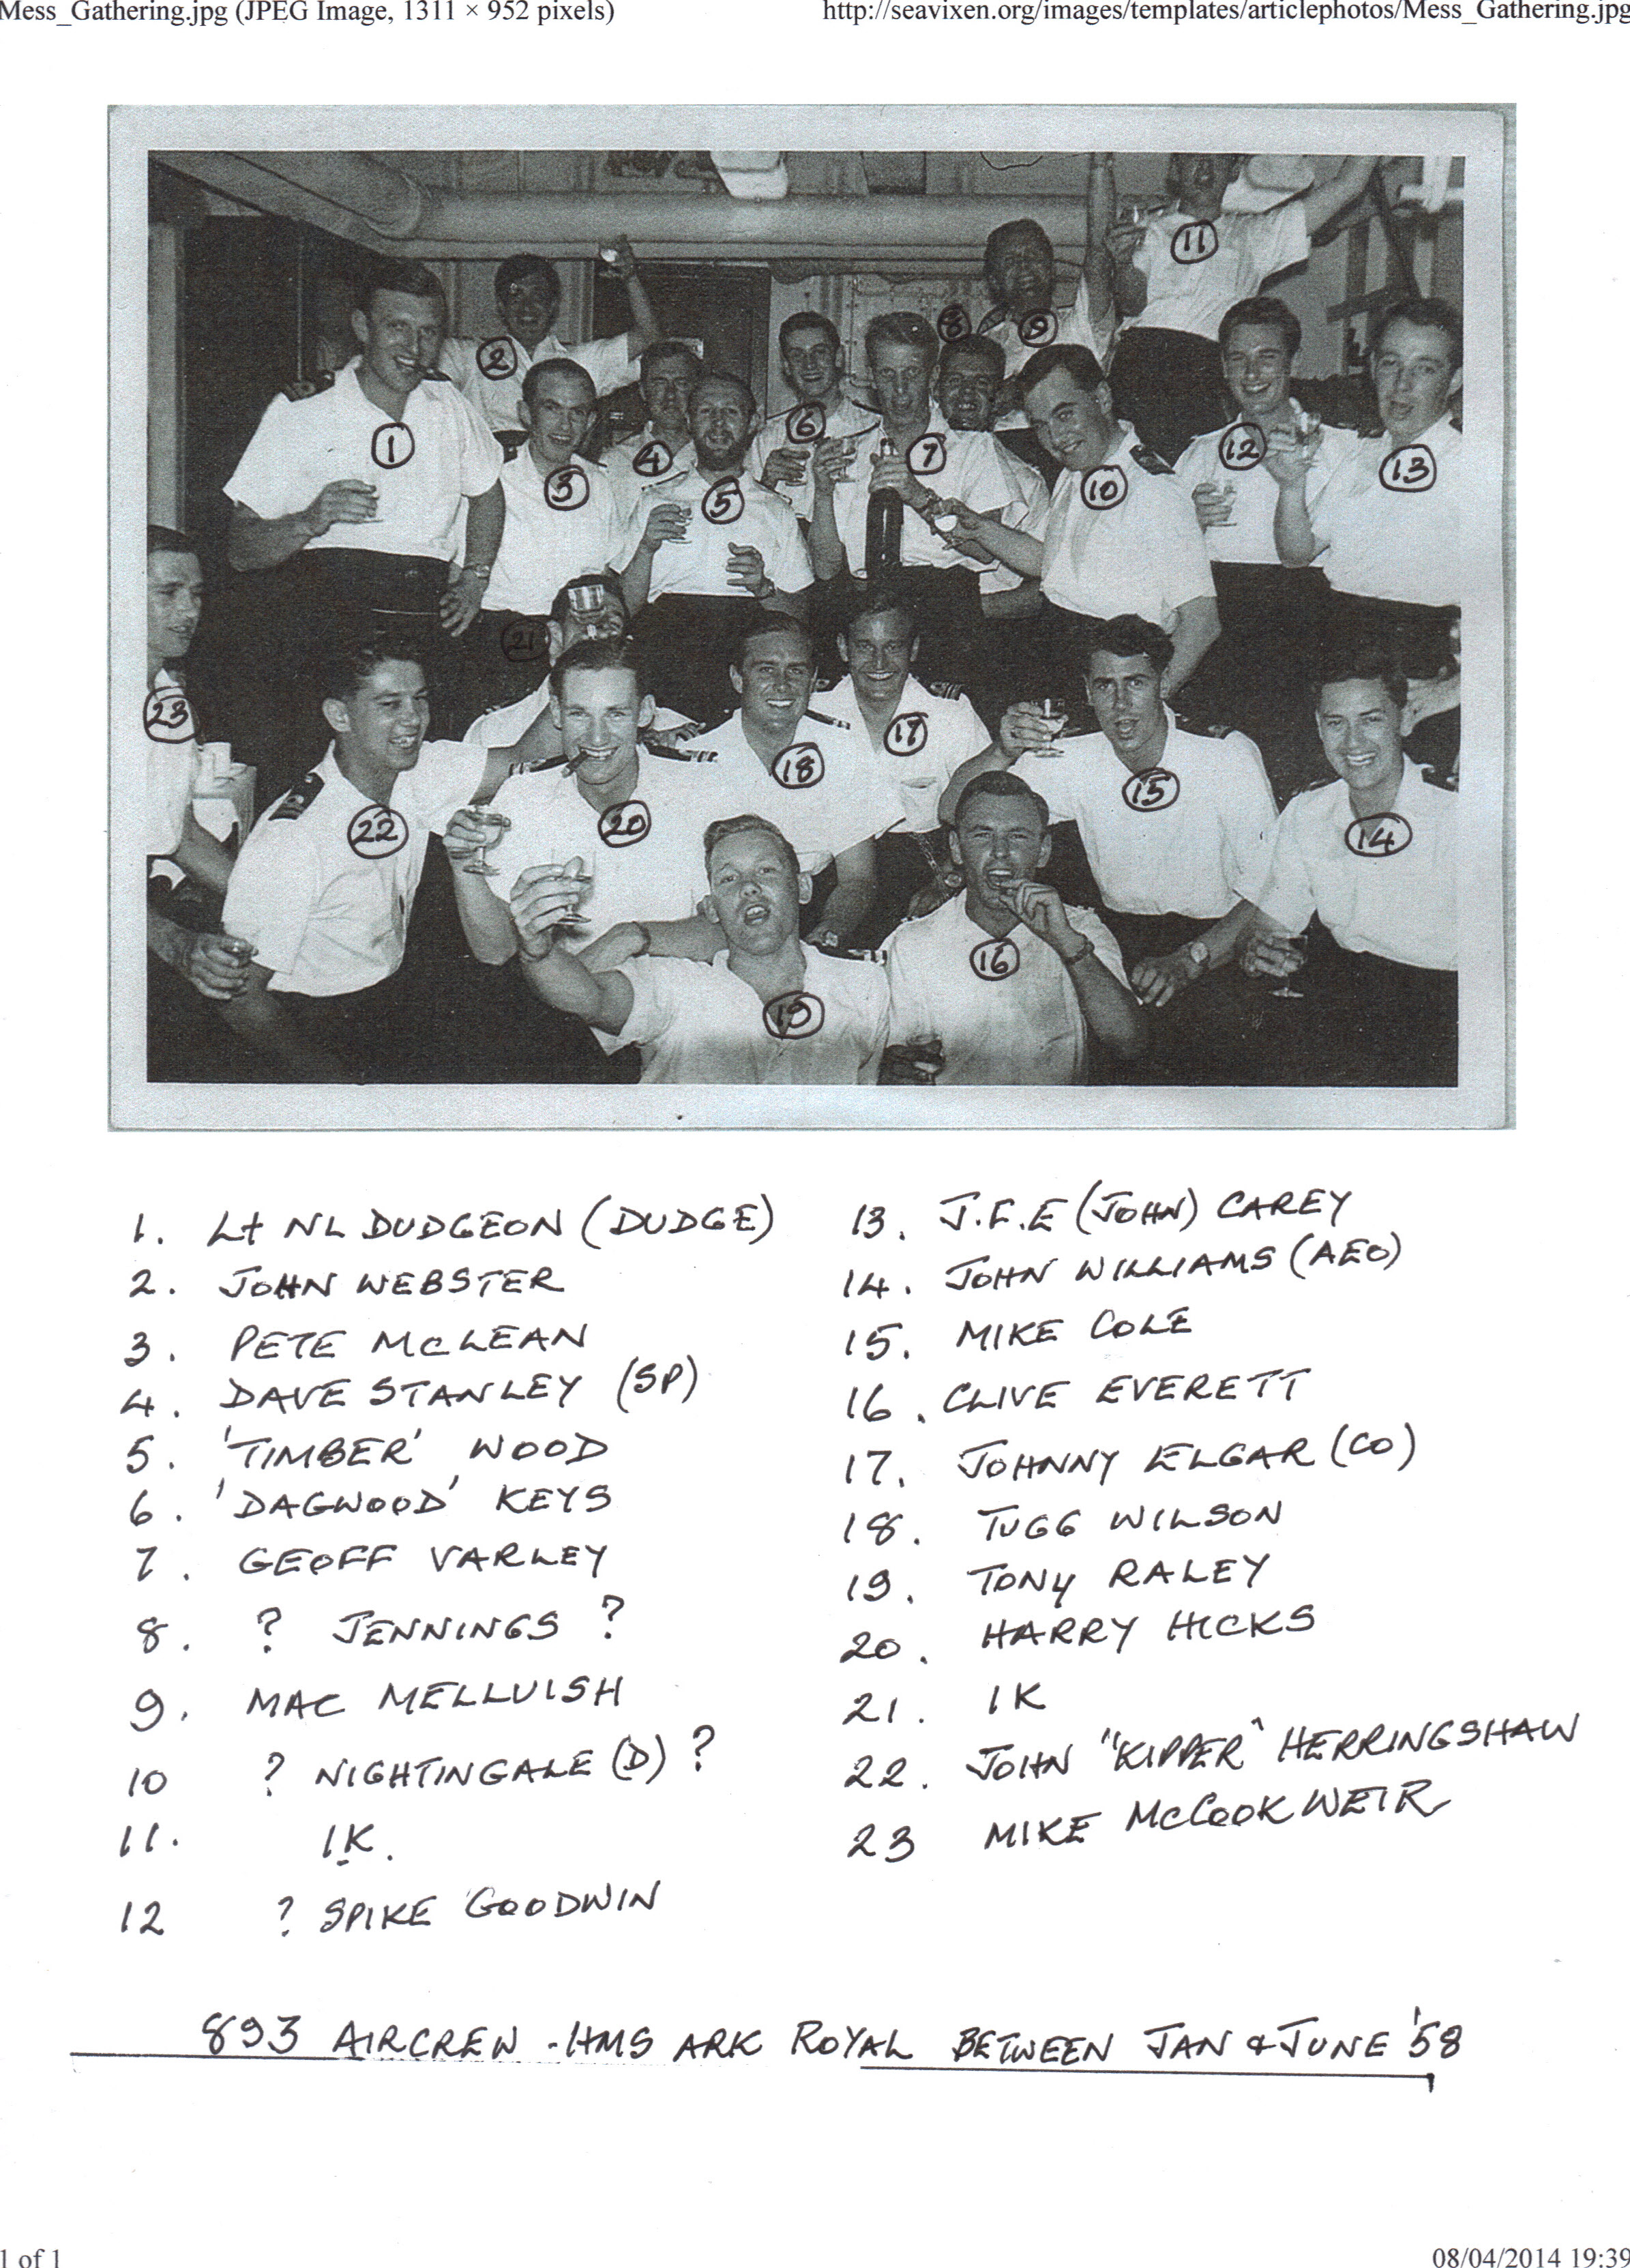 Mess_Gathering.jpg (JPEG Image, 1311 × 952 pixels) http://seavixen.org/images/templates/articlephotos/Mess_Gathering.jpg
11
2
8
9
1
6
12
4
7
13
3
5
10
21
23
17
18
15
22
20
14
16
19
1. Lt NL DUDGEON (DUDGE)
2. JOHN WEBSTER
3. PETE McLEAN
4. DAVE STANLEY (SP)
5. 'TIMBER' WOOD
6. 'DAGWOOD' KEYS
7. GEOFF VARLEY
8. ? JENNINGS ?
9. MAC MELLUISH
10 ? NIGHTINGALE (D) ?
11. IK.
12 ? SPIKE GOODWIN
13. J.F.E (JOHN) CAREY
14. JOHN WILLIAMS (AEO)
15. MIKE COLE
16. CLIVE EVERETT
17. JOHNNY ELGAR (CO)
18. TUGG WILSON
19. TONY RALEY
20. HARRY HICKS
21. IK
22. JOHN "KIPPER" HERRINGSHAW
23 MIKE McCOOK WEIR
893 AIRCREW - HMS ARK ROYAL BETWEEN JAN & JUNE '58
1 of 1 08/04/2014 19:39